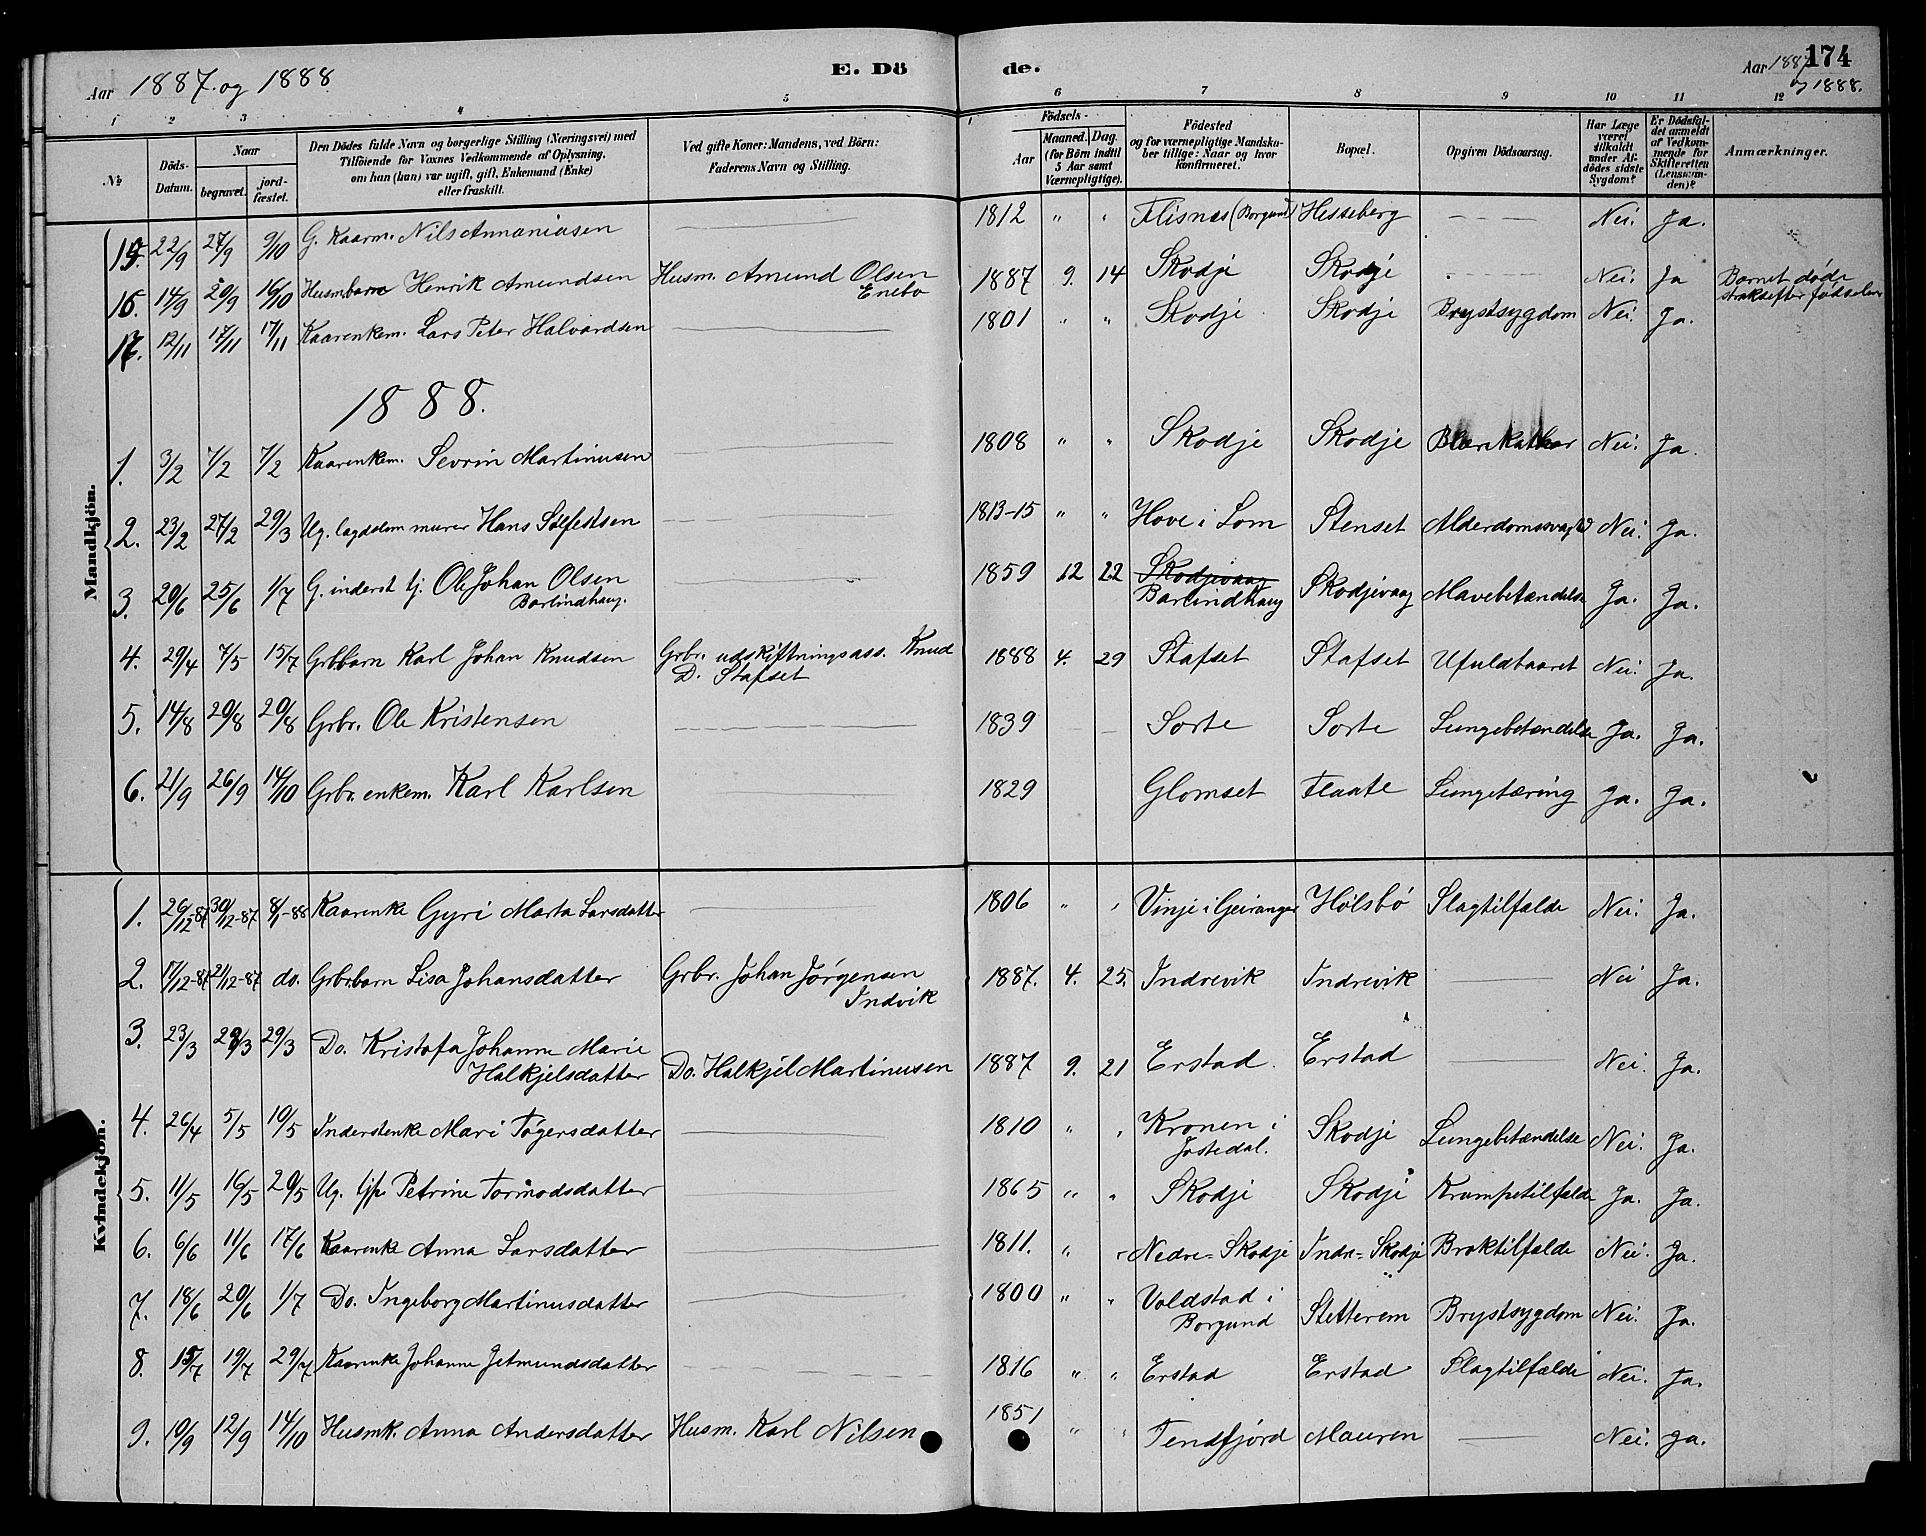 Aar 1887 og 1888
E. Dö
de.
Aar 1887 174
og 1888.
1 2 3 4 5 6 7 8 9 10 11 12
№
Döds-Datum.
Naar
begravet.
jordfæstet.
Den Dödes fulde Navn og borgerlige Stilling (Næringsvei) med
Tilföiende for Voxnes Vedkommende af Oplysning,
om han (hun) var ugift, gift, Enkemand (Enke)
eller fraskilt.
Ved gifte Koner: Mandens, ved Börn:
Faderens Navn og Stilling.
Födsels-
Aar
Maaned. Dag.
(for Börn indtil
5 Aar samt
Værnepligtige).
Födested
og for værnepligtige Mandskaber tillige: Naar og hvor
konfirmeret.
Bopæl.
Opgiven Dödsaarsag.
Har Læge
været
tilkaldt
under Afdödes sidste
Sygdom?
Er Dödsfaldet anmeldt
af Vedkommende for
Skifteretten
(Lensmanden)?
Anmærkninger.
Mandkjön.
15. 22/9 27/9 9/10 G. Kaarm. Nils Annaniasen 1812 " " Flisnes (Borgund) Hesseberg Nei. Ja.
16. 14/9 20/9 16/10 Husmbarn Henrik Amundsen Husm. Amund Olsen Enebo 1887 9. 14 Skodje Skodje Nei. Ja Barnet døde straks efter fødselen
17. 12/11 17/11 17/11 Kaarenkem. Lars Peter Halvardsen 1801 " " Skodje Skodje Brystsygdom Nei. Ja.
1888.
1. 3/2 7/2 7/2 Kaarenkem. Sevrin Martinusen 1808 " " Skodje Skodje Blærekathar Nei. Ja.
2. 23/2 27/2 29/3 Ug. lagdslem murer Hans Selfestsen 1813-15 " " Hove i Lom Stenset Alderdomssvagh Nei. Ja.
3. 20/6 25/6 1/7 G. inderst tj. Ole Johan Olsen Barlindhaug. 1859 12 22 Skodjevaag Barlindhaug Skodjevaag Mavebetændelse Ja. Ja.
4. 29/4 7/5 15/7 Grbbarn Karl Johan Knudsen Grbr. udskiftningsass. Knud D. Stafset 1888 4. 29 Stafset Stafset Ufuldbaaret Nei. Ja.
5. 14/8 20/8 20/8 Grbr. Ole Kristensen 1839 Sorte Sorte Lungebetændelse Ja. Ja.
6. 21/9 26/9 14/10 Grbr. enkem. Karl Karlsen 1829 Glomset Flaate Lungetæring Ja. Ja.
Kvindekjön.
1. 26/12-87 30/12-87 8/1-88 Kaarenke Gyri Marta Larsdatter 1806 " " Vinje i Geiranger Hølsbø Slagtilfælde Nei. Ja.
2. 17/12-87 21/12-87 do. Grbr.barn Lisa Johansdatter Grbr. Johan Jørgensen Indvik 1887. 4. 25. Indrevik Indrevik Nei Ja.
3. 23/3 28/3 29/3 Do. Kristofa Johanne Marie Halkjelsdatter Do. Halkjel Martinusen 1887 9. 21 Erstad Erstad Nei. Ja.
4. 26/4 5/5 10/5 Inderstenke Mari Tøgersdatter 1810 " " Kronen i Jostedal. Skodje Lungebetændelse Nei. Ja.
5. 11/5 16/5 20/5 Ug. tjp. Petrine Tormodsdatter 1865 " " Skodje Skodje Krampetilfælde Ja. Ja.
6. 6/6 11/6 17/6 Kaarenke Anna Larsdatter 1811. " " Nedre-Skodje Indr-Skodje Broktilfælde Nei. Ja.
7. 18/6 20/6 1/7 Do. Ingeborg Martinusdatter 1800 " " Voldstad i Borgund Stetterem Brystsygdom Nei. Ja.
8. 15/7 19/7 29/7 Kaarenke Johanne Jetmundsdatter 1816 " " Erstad Erstad Slagtilfælde Nei. Ja.
9. 10/9 12/9 14/10 Husmk. Anna Andersdatter Husm. Karl Nilsen 1851 " " Tendfjord Mauren Nei. Ja.